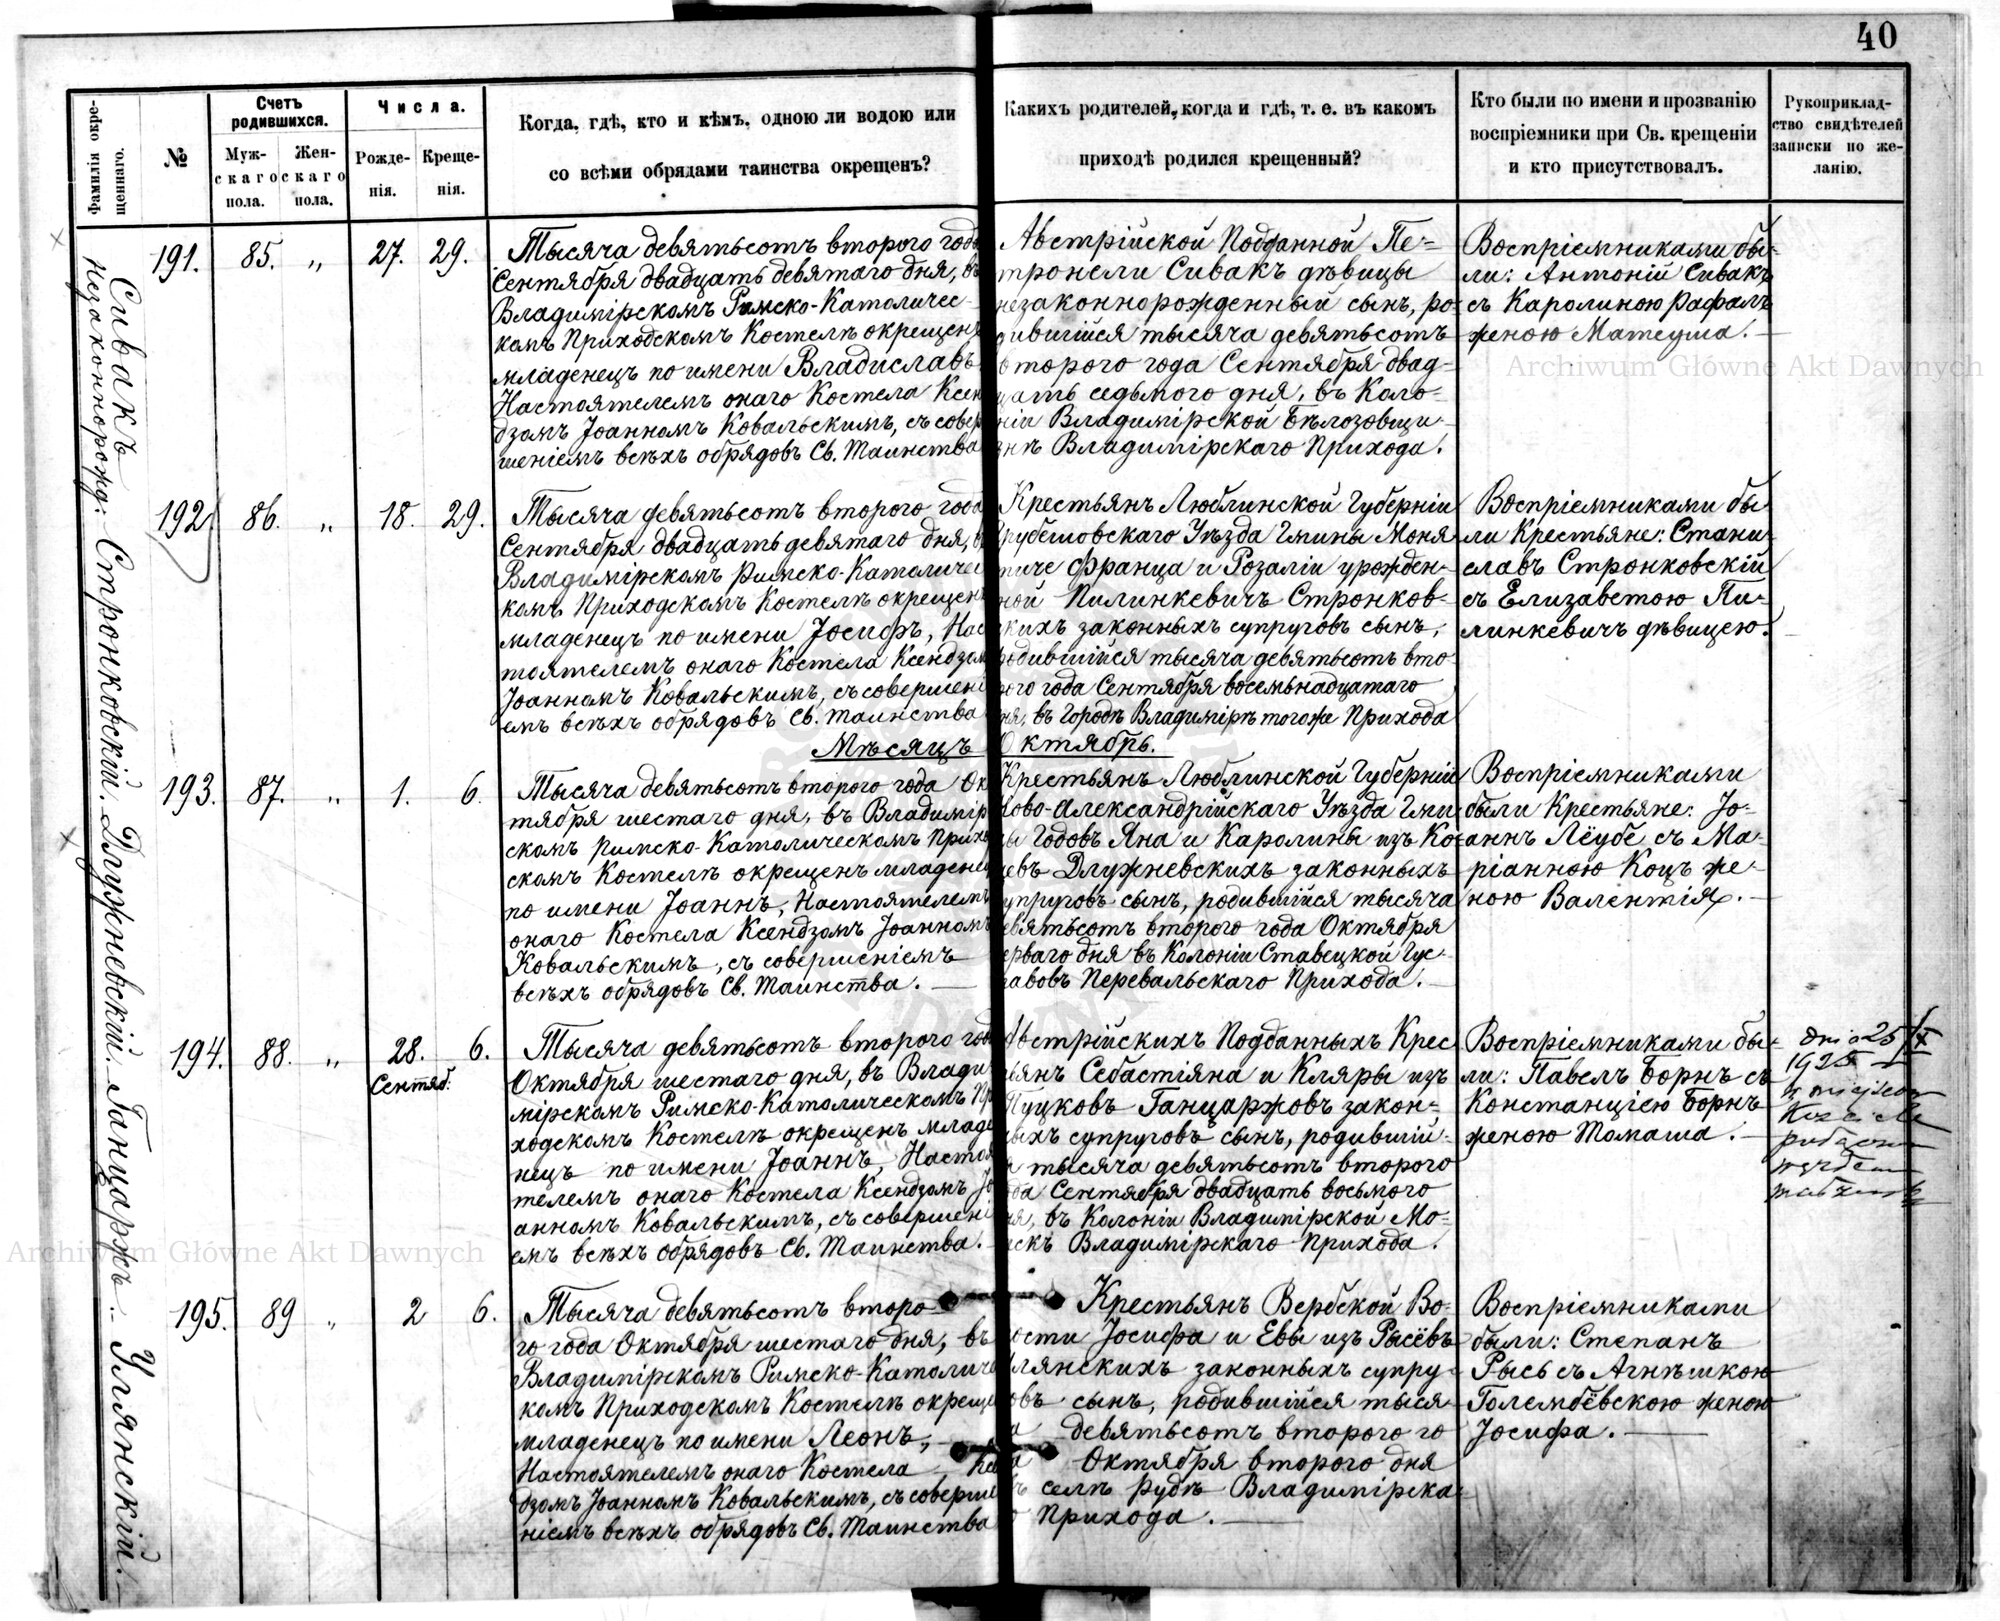 40
Фамилія окре-
щеннаго.
№
Счетъ
родившихся.
Муж-
скаго
пола.
Жен-
скаго
пола.
Числа.
Рожде-
нія.
Креще-
нія.
Когда, гдѣ, кто и кѣмъ, одною ли водою или
со всѣми обрядами таинства окрещенъ?
Какихъ родителей, когда и гдѣ, т. е. въ какомъ
приходѣ родился крещенный?
Кто были по имени и прозванію
воспріемники при Св. крещеніи
и кто присутствовалъ.
Рукоприклад-
ство свидѣтелей
записки по же-
ланію.
Сивакъ
незаконнорожд:
191. 85. „ 27. 29.
Тысяча девятьсотъ второго года
Сентября двадцать девятаго дня, въ
Владимірскомъ Римско-Католичес-
комъ Приходскомъ Костелѣ окрещенъ
младенецъ по имени Владиславъ
Настоятелемъ онаго Костела Ксен
дзомъ Іоанномъ Ковальскимъ, съ совер
шеніемъ всѣхъ обрядовъ Св. Таинства
Австрійской Подданной Пе-
тронели Сивакъ дѣвицы
незаконнорожденный сынъ, ро-
дившійся тысяча девятьсотъ
второго года Сентября двад-
цать седьмого дня, въ Коло-
ніи Владимірской Бѣлозовщи-
знѣ Владимірскаго Прихода.
Воспріемниками бы-
ли: Антоній Сивакъ
съ Каролиною Рафалъ
женою Матеуша.
Стронковскій.
192. 86. „ 18. 29.
Тысяча девятьсотъ второго года
Сентября двадцать девятаго дня, въ
Владимірскомъ Римско-Католичес
комъ Приходскомъ Костелѣ окрещенъ
младенецъ по имени Іосифъ, Нас
тоятелемъ онаго Костела Ксендзом
Іоанномъ Ковальскимъ, съ совершені
емъ всѣхъ обрядовъ Св. Таинства
Крестьянъ Люблинской Губерніи
Грубешовскаго Уѣзда Гмины Моня
тиче Франца и Розаліи урожден-
ной Пилинкевичъ Стронков-
скихъ законныхъ супруговъ сынъ,
родившійся тысяча девятьсотъ вто
рого года Сентября восемьнадцатаго
дня, въ Городѣ Владимірѣ тогоже Прихода
Воспріемниками бы
ли Крестьяне: Стани-
славъ Стронковскій
съ Елизаветою Пи-
линкевичъ дѣвицею.
Мѣсяцъ Октябрь.
Длужневскій.
193. 87. „ 1. 6.
Тысяча девятьсотъ второго года Ок
тября шестаго дня, въ Владимір
скомъ Римско-Католическомъ Прихо
скомъ Костелѣ окрещенъ младенец
по имени Іоаннъ, Настоятелемъ
онаго Костела Ксендзомъ Іоанномъ
Ковальскимъ, съ совершеніемъ
всѣхъ обрядовъ Св. Таинства.
Крестьянъ Люблинской Губерніи
Ново-Александрійскаго Уѣзда Гми
ны Годовъ Яна и Каролины изъ Ко
Длужневскихъ законныхъ
супруговъ сынъ, родившійся тысяча
девятьсотъ второго года Октября
перваго дня въ Колоніи Ставецкой Гус-
тавовъ Перевальскаго Прихода.
Воспріемниками
были Крестьяне: Іо-
аннъ Лёубе съ Ма-
ріанною Коцъ же-
ною Валентія.
Ганцаржъ.
194. 88. „ 28. 6.
Сентяб:
Тысяча девятьсотъ второго год
Октября шестаго дня, въ Влади
мірскомъ Римско-Католическомъ Пр
ходскомъ Костелѣ окрещенъ младе
нецъ по имени Іоаннъ, Настоя
телемъ онаго Костела Ксендзомъ Іо
анномъ Ковальскимъ, съ совершені
емъ всѣхъ обрядовъ Св. Таинства.
Австрійскихъ Подданныхъ Крес
тьянъ Себастіяна и Кляры изъ
Луцковъ Ганцаржовъ закон-
ныхъ супруговъ сынъ, родившій-
ся тысяча девятьсотъ второго
года Сентября двадцать восьмого
дня, въ Колоніи Владимірской Мо-
Владимірскаго Прихода.
Воспріемниками бы-
ли: Павелъ Борнъ съ
Констанціею Борнъ
женою Томаша.
dnia 25/X
Угянскій.
195. 89 „ 2 6.
Тысяча девятьсотъ второ-
го года Октября шестаго дня, въ
Владимірскомъ Римско-Католиче
комъ Приходскомъ Костелѣ окреще
младенецъ по имени Леонъ,
Настоятелемъ онаго Костела Ксе
дзомъ Іоанномъ Ковальскимъ, съ соверше
ніемъ всѣхъ обрядовъ Св. Таинства
Крестьянъ Вербской Во-
лости Іосифа и Евы изъ Рысёвъ
Углянскихъ законныхъ супру-
говъ сынъ, родившійся тыся
ча девятьсотъ второго го
да Октября второго дня
въ селѣ Рудѣ Владимірска
го Прихода.
Воспріемниками
были: Степанъ
Рысь съ Агнѣшкою
Голембёвскою женою
Іосифа.
Archiwum Główne Akt Dawnych
Archiwum Główne Akt Dawnych